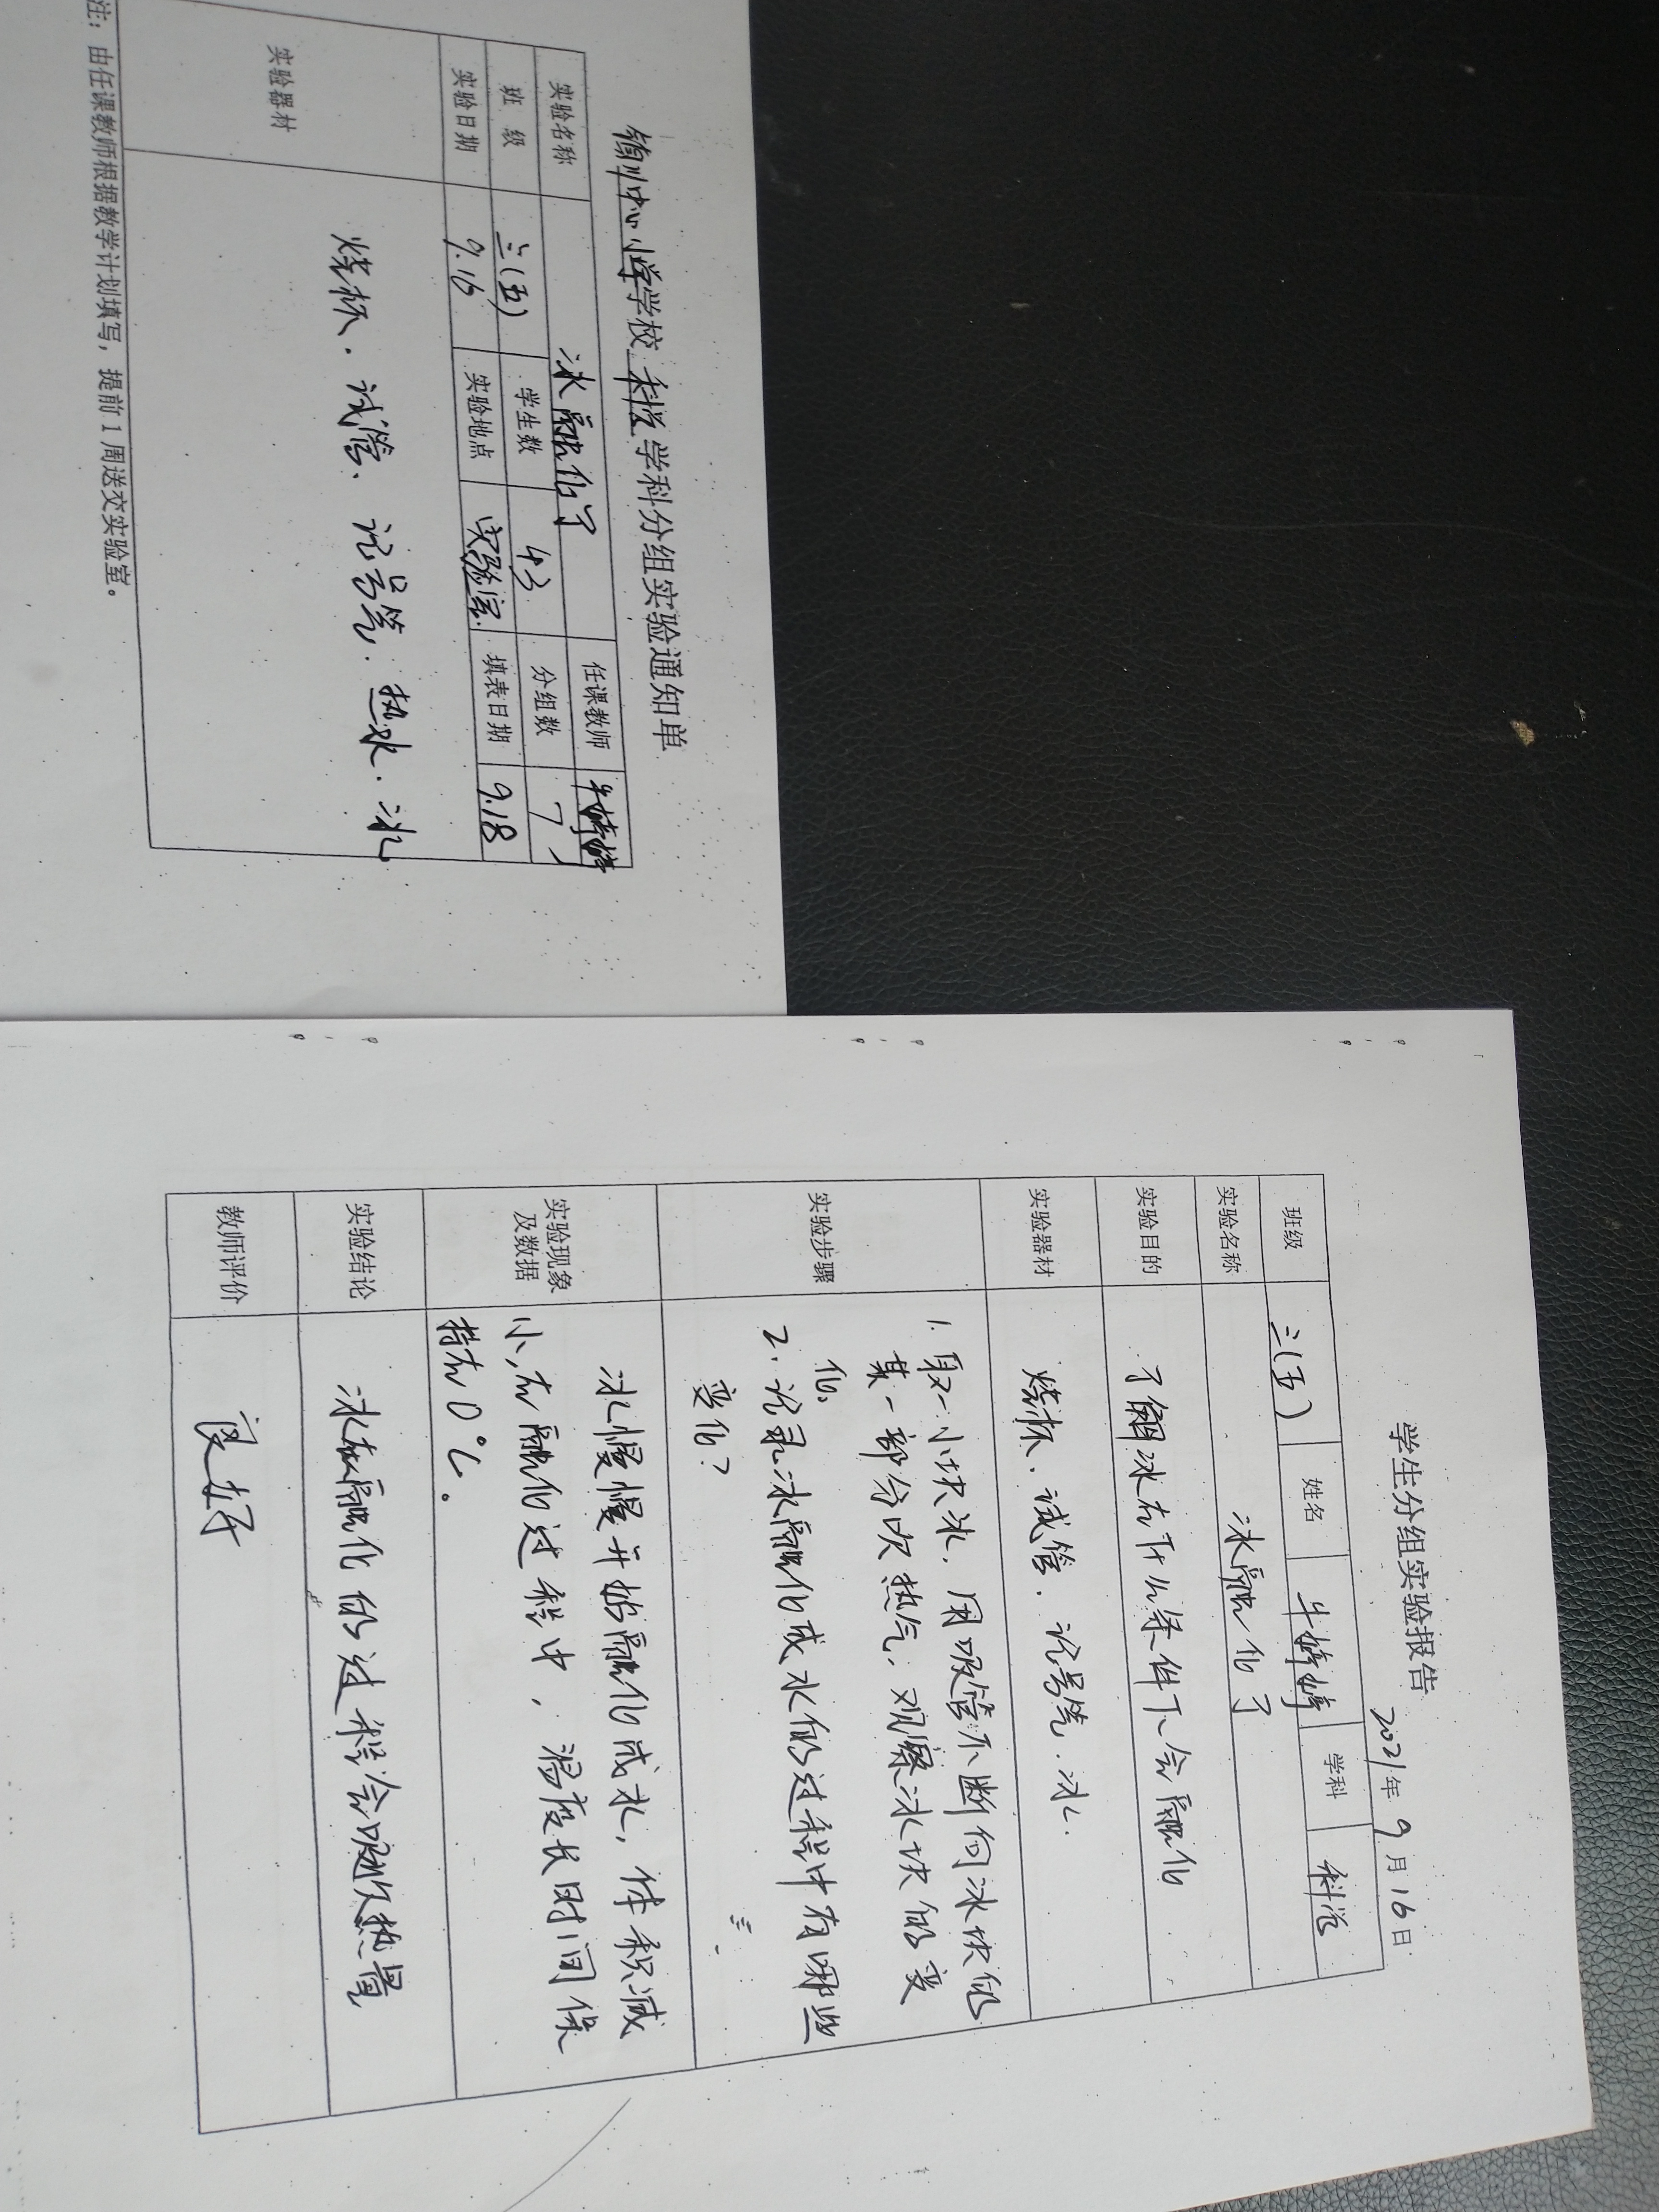 中心小学学校 科学 学科分组实验通知单
实验名称 冰融化了 任课教师 牛婷婷
班 级 三(五) 学生数 43 分组数 7
实验日期 9.16 实验地点 实验室 填表日期 9.18
实验器材 烧杯、试管、记号笔、热水、冰
注：由任课教师根据教学计划填写，提前1周送交实验室。
学生分组实验报告
2021年 9月16日
班级 三(五) 姓名 牛婷婷 学科 科学
实验名称 冰融化了
实验目的 了解冰在什么条件下会融化
实验器材 烧杯、试管、记号笔、冰.
实验步骤
1. 取一小块冰，用吸管不断向冰块的
某一部分吹热气，观察冰块的变
化。
2. 记录冰融化成水的过程中有哪些
变化？
实验现象
及数据
冰慢慢开始融化成水，体积减
小，在融化过程中，温度长时间保
持在0℃。
实验结论 冰在融化的过程会吸热量
教师评价 良好